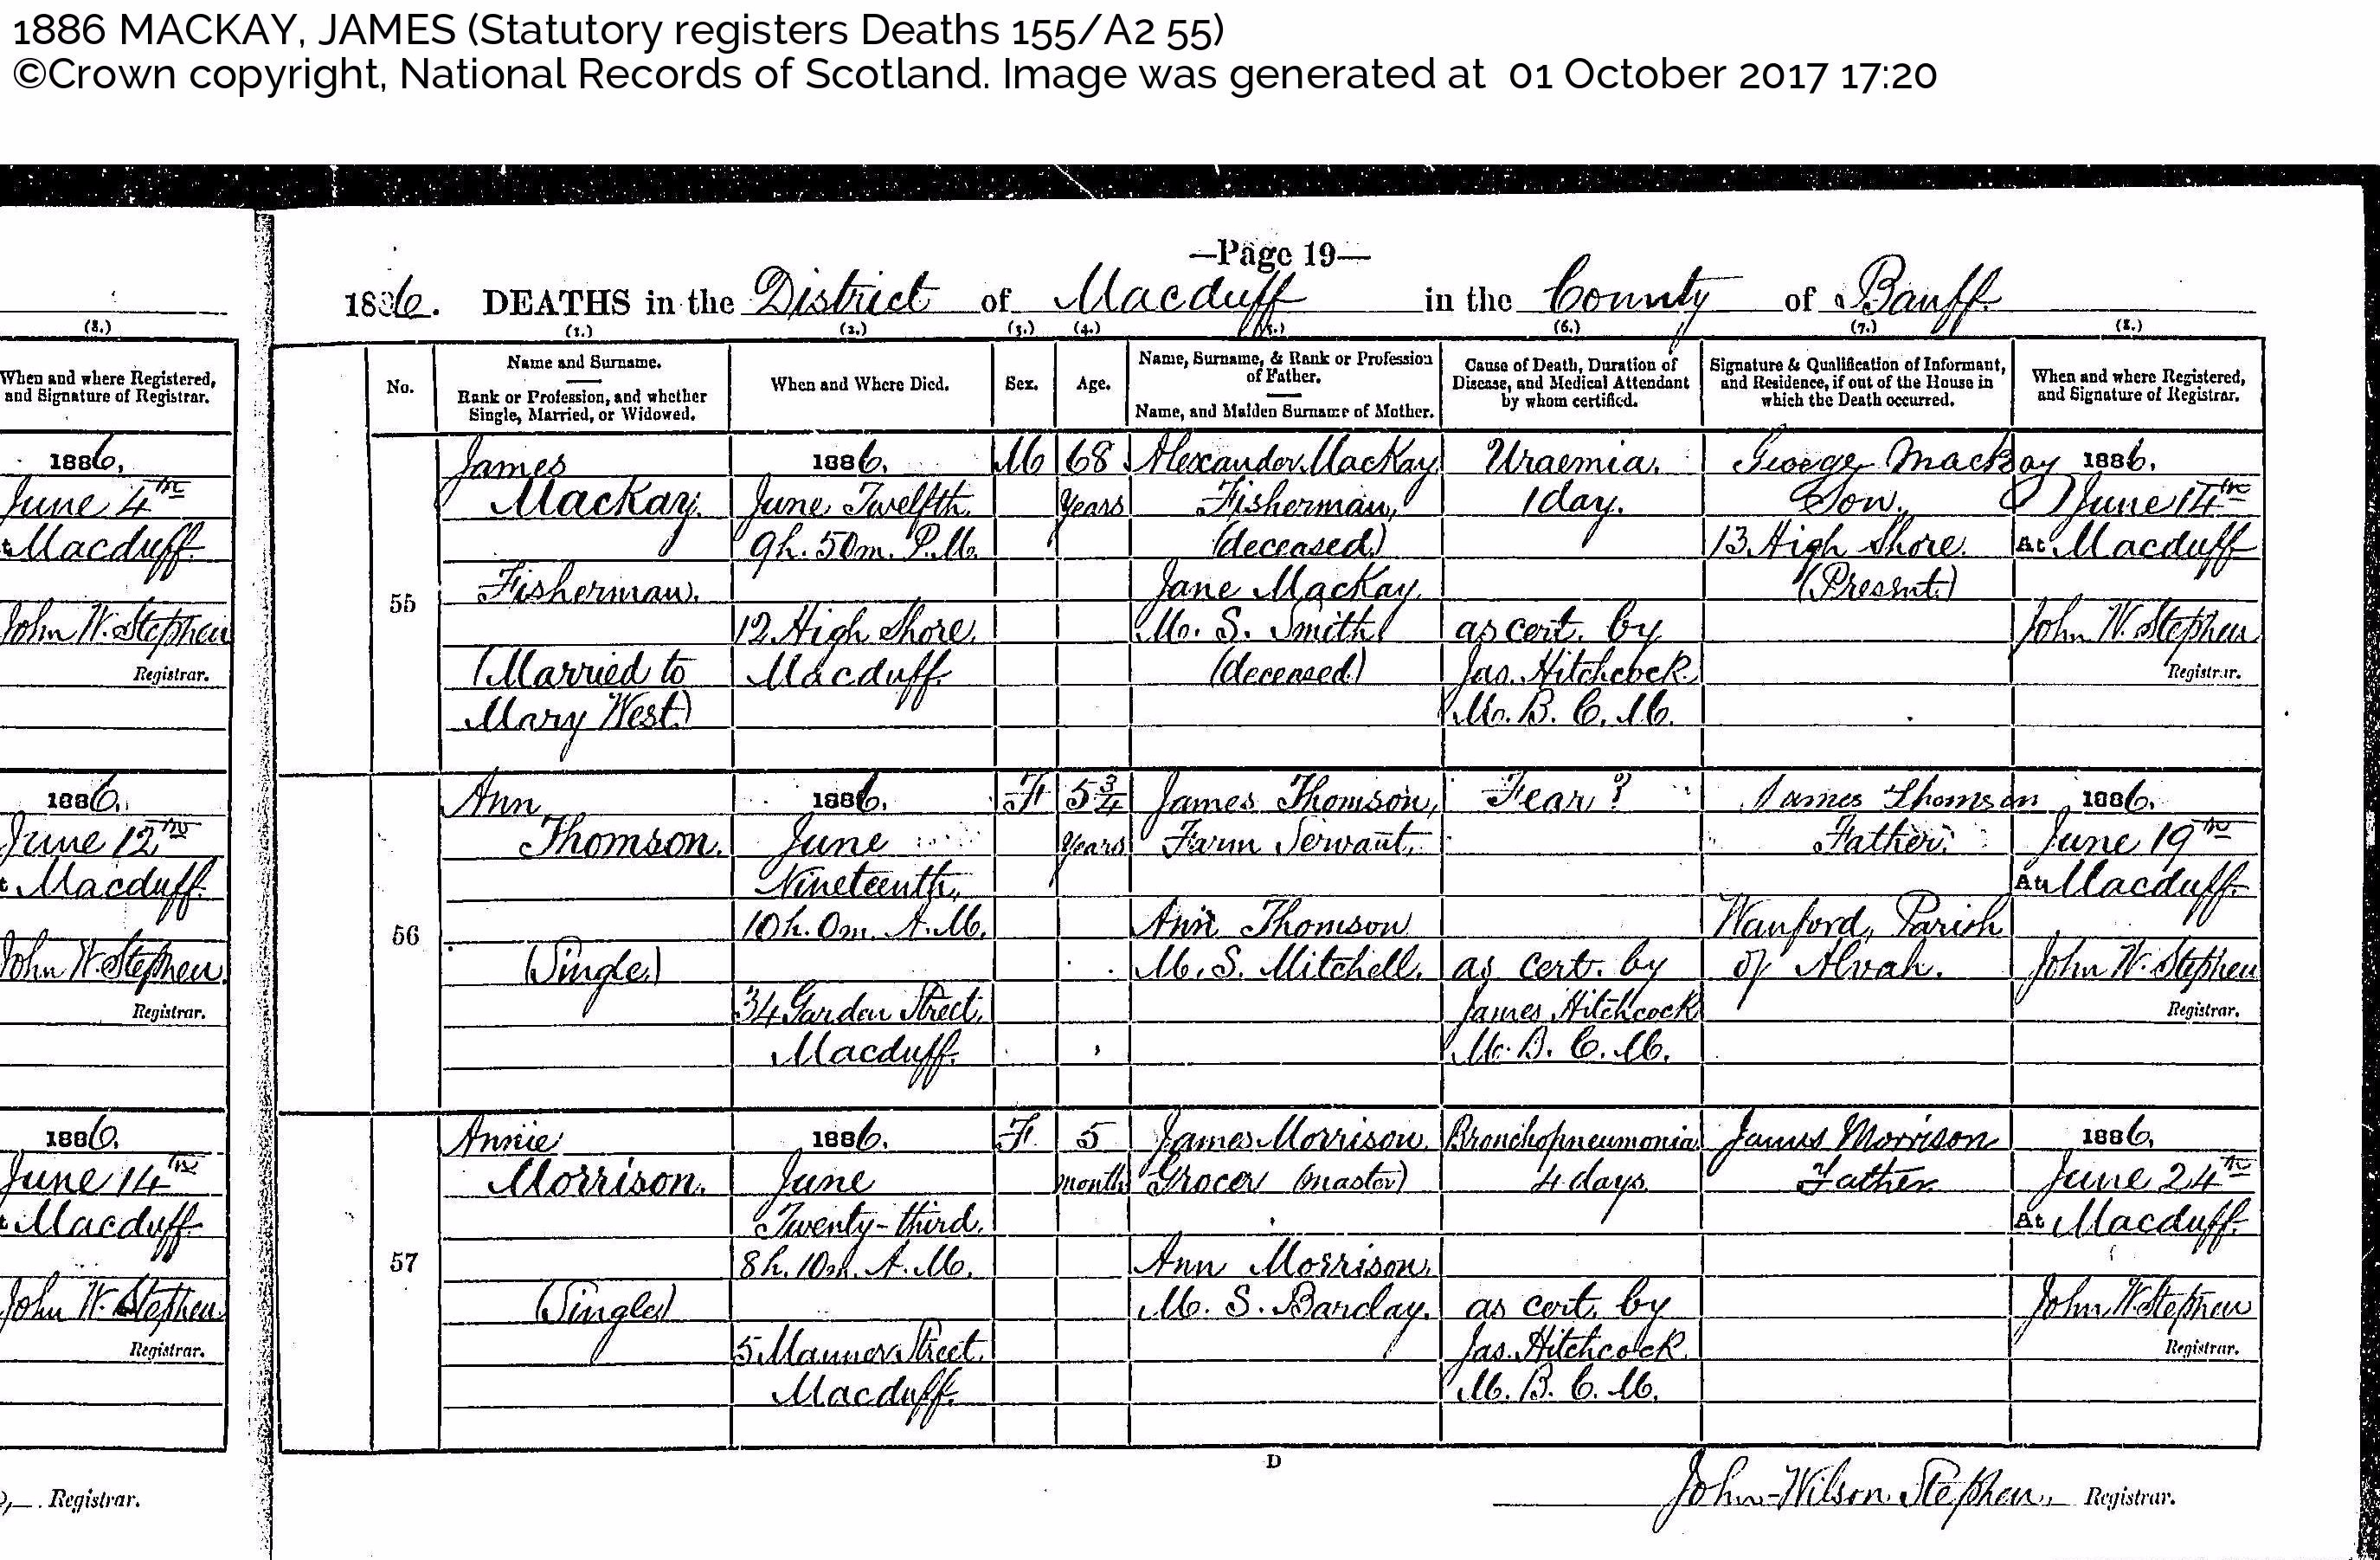 1886 MACKAY, JAMES (Statutory registers Deaths 155/A2 55)
©Crown copyright, National Records of Scotland. Image was generated at 01 October 2017 17:20
(8.)
When and where Registered,
and Signature of Registrar.
1886,
June 4th
Macduff.
John W. Stephen
Registrar.
1886,
June 12th
Macduff.
John W. Stephen.
Registrar.
1886,
June 14th
Macduff.
John W. Stephen
Registrar.
Registrar.
—Page 19—
1886. DEATHS in the District of Macduff in the County of Banff.
(1.) (2.) (3.) (4.) (5.) (6.) (7.) (8.)
No.
Name and Surname.
Rank or Profession, and whether
Single, Married, or Widowed.
When and Where Died.
Sex.
Age.
Name, Surname, & Rank or Profession
of Father.
Name, and Maiden Surname of Mother.
Cause of Death, Duration of
Disease, and Medical Attendant
by whom certified.
Signature & Qualification of Informant,
and Residence, if out of the House in
which the Death occurred.
When and where Registered,
and Signature of Registrar.
55
James
MacKay.
Fisherman.
(Married to
Mary West)
1886,
June Twelfth
9h. 50m. P.M.
12 High Shore,
Macduff.
M
68
years
Alexander MacKay
Fisherman,
(deceased)
Jane MacKay
M. S. Smith
(deceased)
Uraemia.
1 day.
as cert. by
Jas. Hitchcock
M. B. C. M.
George Mackay
Son.
13, High Shore.
(Present)
1886,
June 14th
At Macduff
John W. Stephen
Registrar.
56
Ann
Thomson.
(Single)
1886,
June
Nineteenth,
10h. 0m. A.M.
34 Garden Street,
Macduff.
F
5 3/4
years
James Thomson,
Farm Servant,
Ann Thomson
M. S. Mitchell.
Fear?
as cert. by
James Hitchcock
M. B. C. M.
James Thomson
Father.
Wanford, Parish
of Alvah.
1886,
June 19th
At Macduff.
John W. Stephen
Registrar.
57
Annie
Morrison.
(Single)
1886,
June
Twenty-third,
8h. 10m. A.M.
5 Manner Street,
Macduff.
F
5
months
James Morrison,
Grocer (master)
Ann Morrison,
M. S. Barclay.
Bronchopneumonia
4 days
as cert. by
Jas. Hitchcock
M. B. C. M.
James Morrison
Father
1886,
June 24th
At Macduff.
John W. Stephen
Registrar.
D
John Wilson Stephen, Registrar.